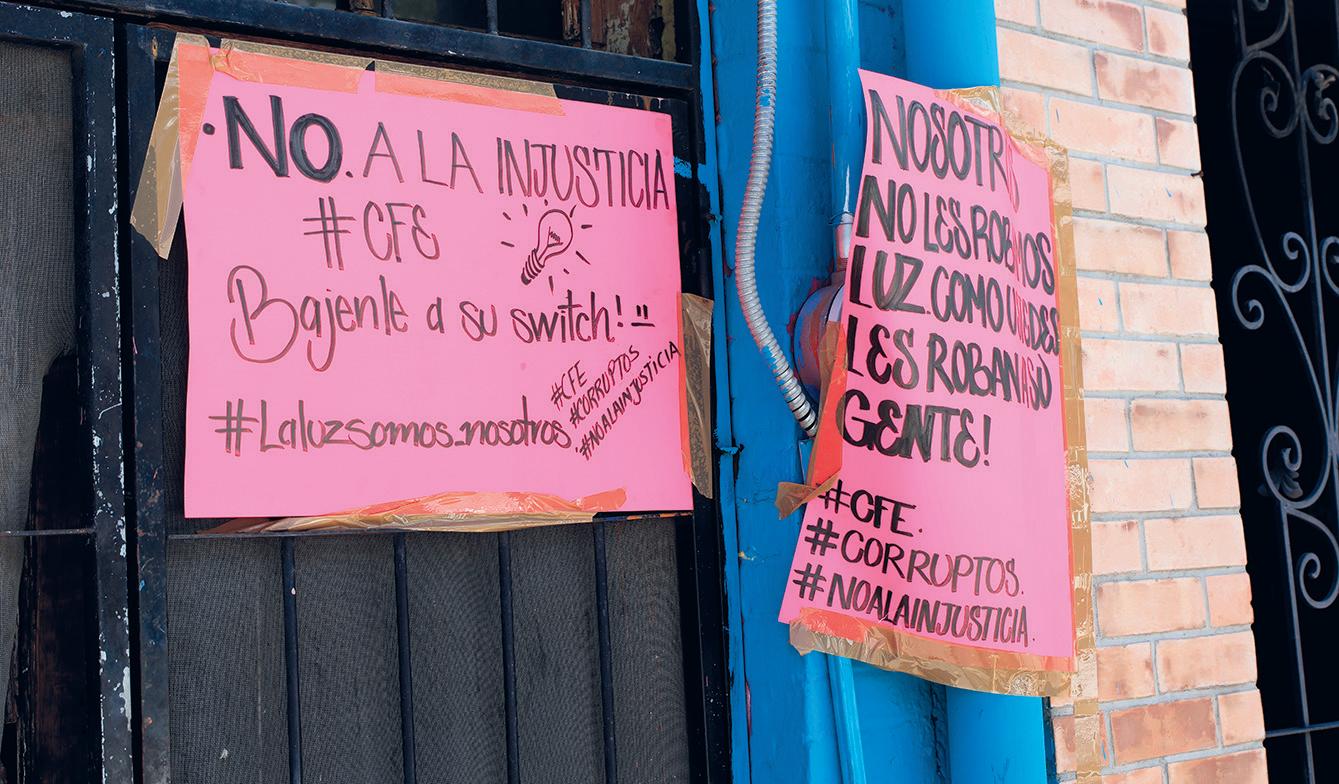 ·NO. A LA INJUSTICIA
#CFE
Bajenle a su switch!
#Laluzsomos_nosotros.
#CFE
#CORRUPTOS
#NOALAINJUSTICIA
NOSOTR@S
NO LES ROBAMOS
LUZ. COMO USTEDES
LES ROBAN A SÙ
GENTE!
#CFE.
#CORRUPTOS.
#NOALAINJUSTICIA.